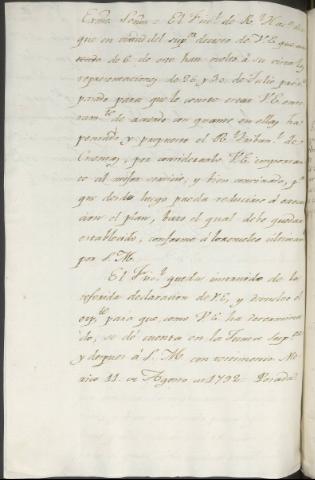 Exmo. Señor = El Fisl. de Rl. Hazda. dice
que en virtud del supor. decreto de V.E. que an-
tecede de 6 de este han vuelto à su vista las
representaciones de 26 y 30 de Julio proximo
pasado para que le conste estar V.E. entera-
mte. de acuerdo con quanto en ellas ha
pensado y propuesto el Rl. Tribunl. de
Cuentas, por considerarlo V.E. importan-
te al mejor servicio, y bien convinado, pa.
que desde luego pueda reducirse á execu-
cion el plan, bajo el qual debe quedar
establecido, conforme à lo resuelto ultimamte.
por S. M.
El Fisl. queda instruido de la
referida declaracion de V.E, y debuelve el
expte. para que, como V.E. ha determina-
do, se dé cuenta en la Junta Supor.
y despues à S. M. con testimonio. Me-
xico 11. de Agosto de 1792. Posada